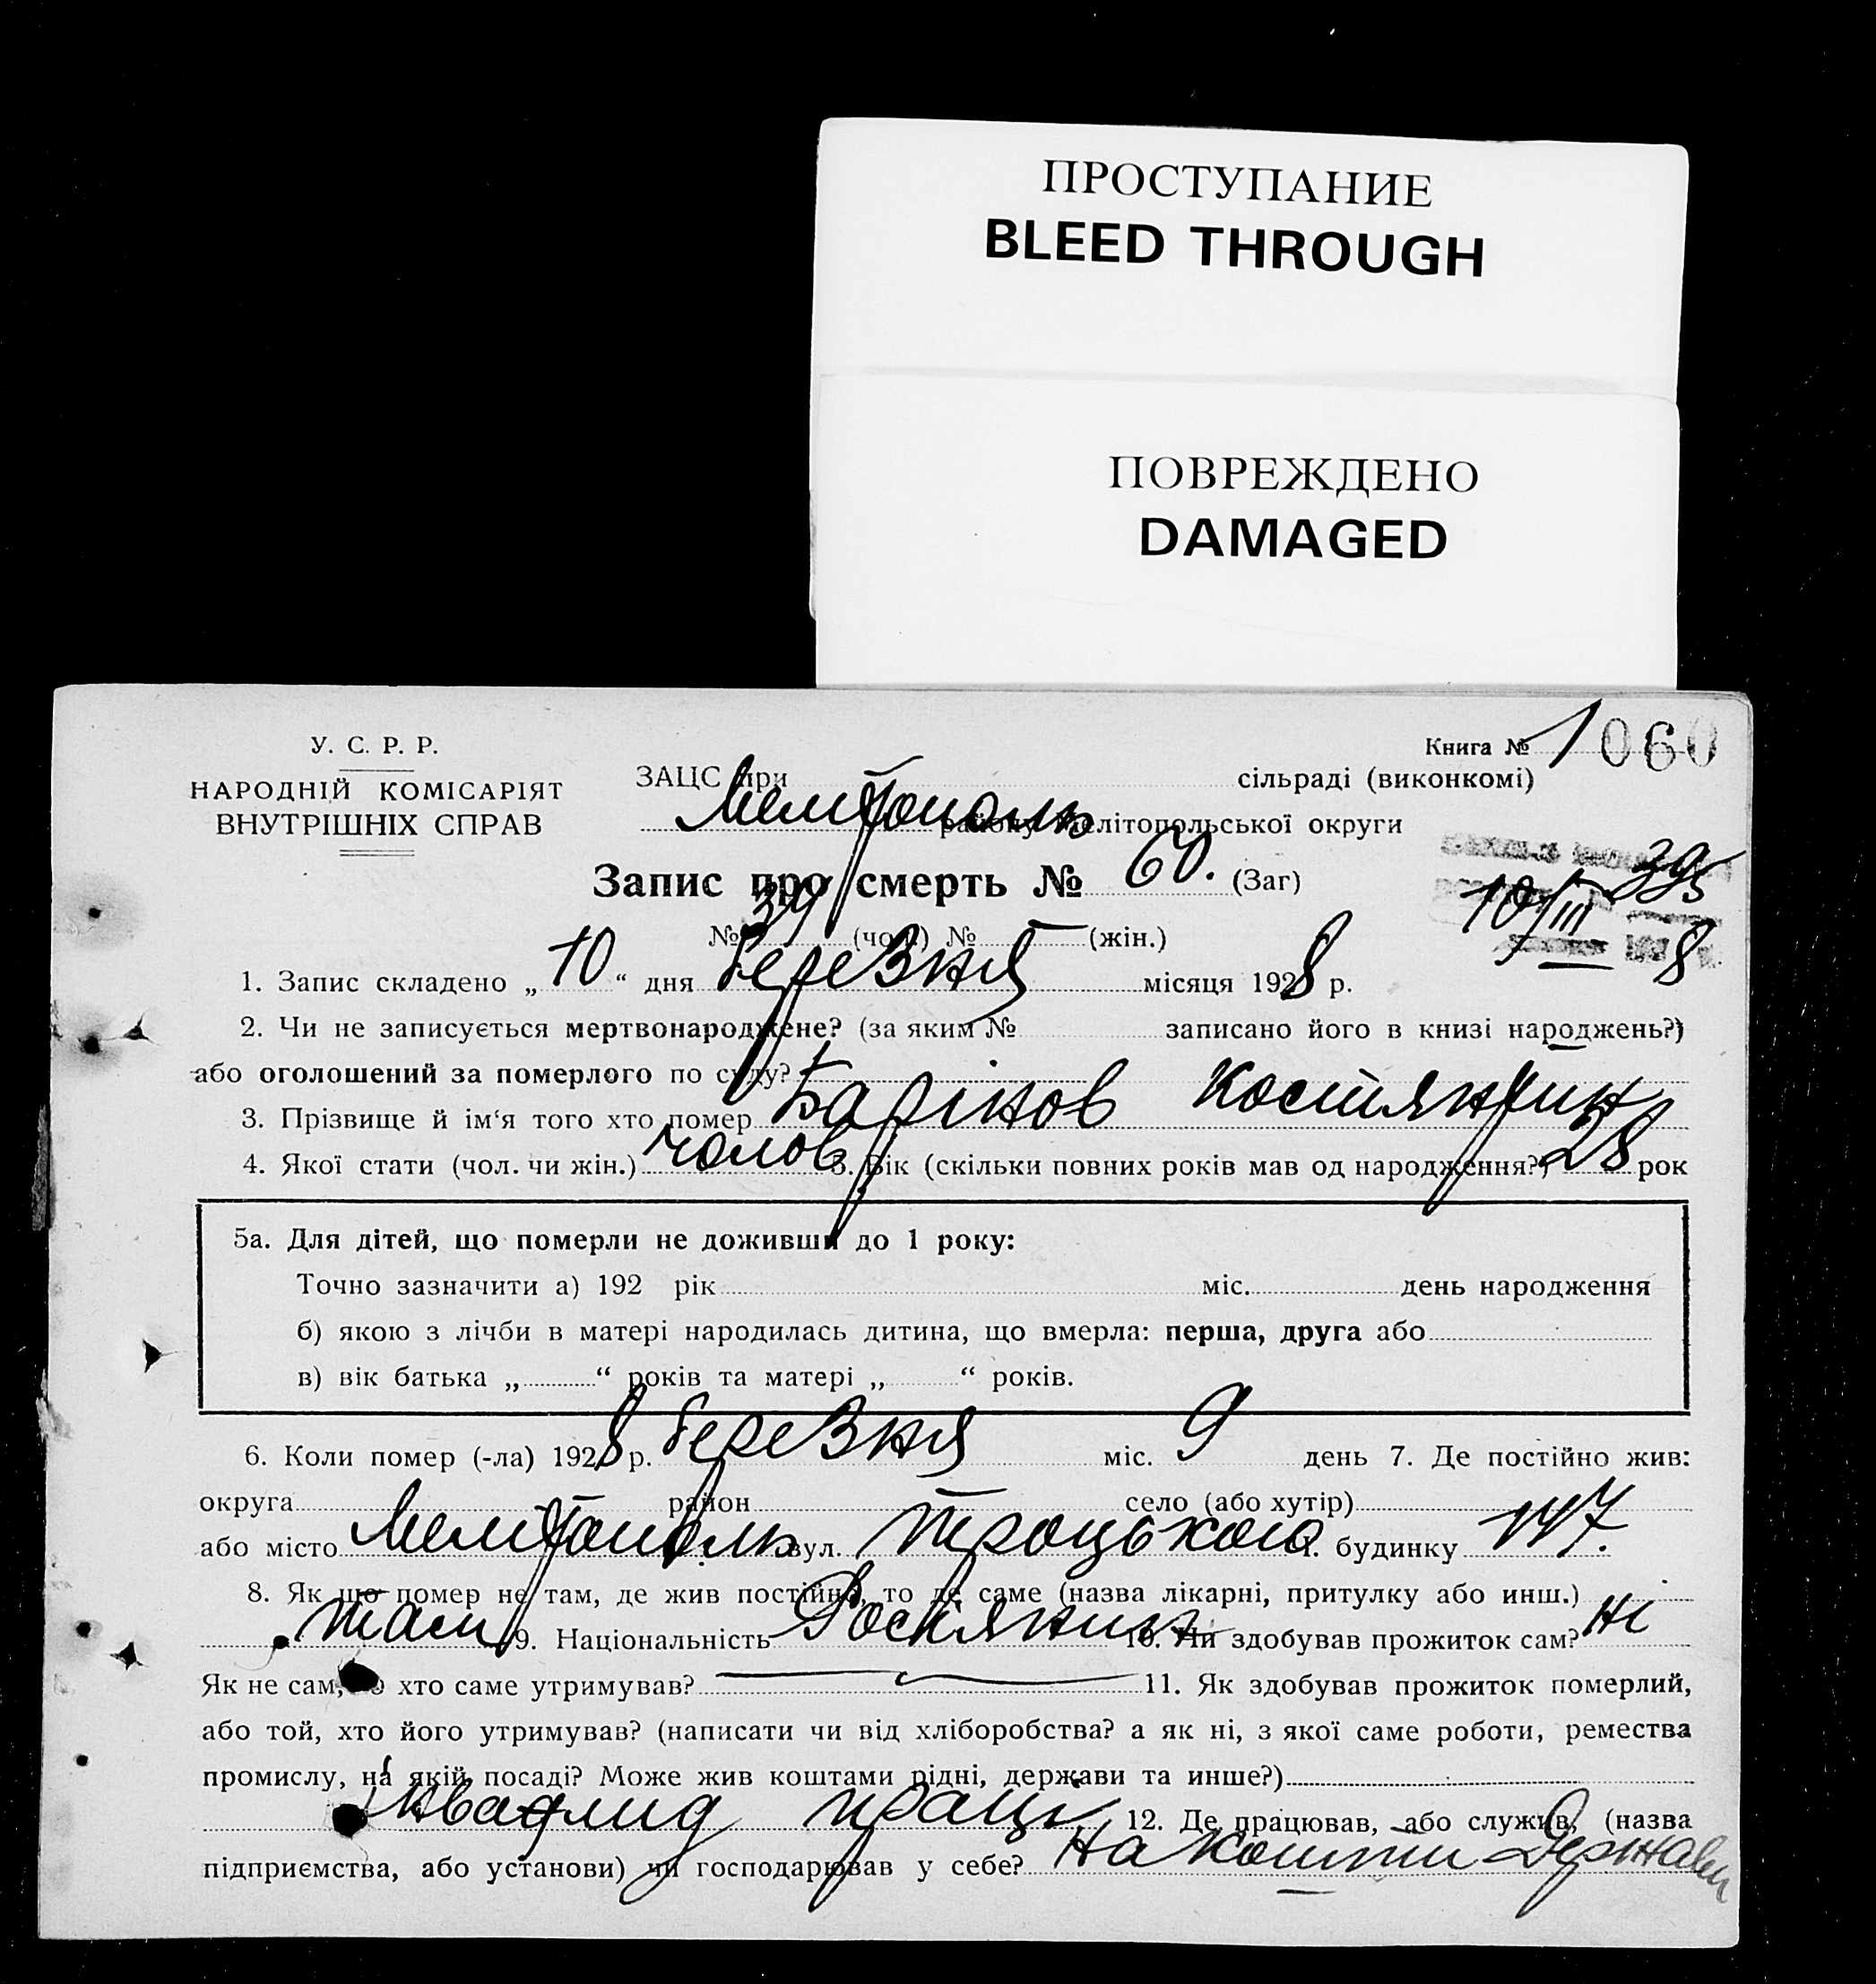 ПРОСТУПАНИЕ
BLEED THROUGH
ПОВРЕЖДЕНО
DAMAGED
У. С. Р. Р.
НАРОДНІЙ КОМІСАРІЯТ
ВНУТРІШНІХ СПРАВ
Книга № 1 060
ЗАЦС при сільраді (виконкомі)
Мелітополь району Мелітопольської округи
Запис про смерть № 60. (Заг)
№ 39 (чол.) № — (жін.)
395
10/III
8
1. Запис складено „ 10 “ дня березня місяця 1928 р.
2. Чи не записується мертвонароджене? (за яким № записано його в книзі народжень?)
або оголошений за померлого по суду?
3. Прізвище й ім‘я того хто помер Барінов Костянтин
4. Якої стати (чол. чи жін.) чолов 5. Вік (скільки повних років мав од народження?) 28 рок
5а. Для дітей, що померли не доживши до 1 року:
Точно зазначити а) 192 рік міс. день народження
б) якою з лічби в матері народилась дитина, що вмерла: перша, друга або
в) вік батька „ “ років та матері „ “ років.
6. Коли помер (-ла) 1928 р. березня міс. 9 день 7. Де постійно жив:
округа район село (або хутір)
або місто Мелітополь вул. Троцького ч. будинку 147.
8. Як що помер не там, де жив постійно, то де саме (назва лікарні, притулку або инш.)
там 9. Національність Росіянин 10. Чи здобував прожиток сам? ні
Як не сам, то хто саме утримував? 11. Як здобував прожиток померлий,
або той, хто його утримував? (написати чи від хліборобства? а як ні, з якої саме роботи, ремества
промислу, на якій посаді? Може жив коштами рідні, держави та инше?)
праці 12. Де працював, або служив, (назва
підприємства, або установи) чи господарював у себе? на кошти Держави